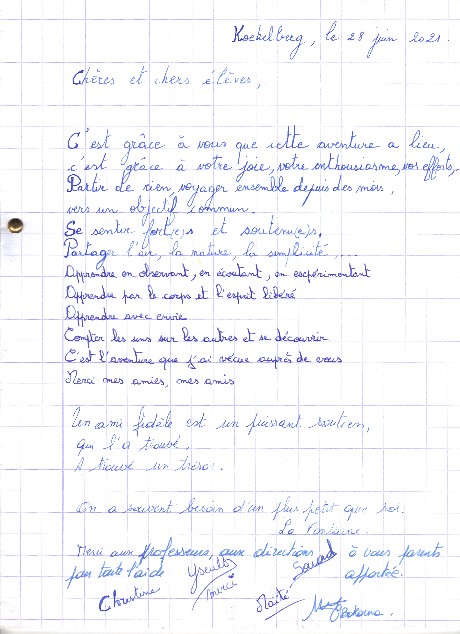 Koekelberg, le 28 juin 2021.
Chères et chers élèves,
C'est grâce à vous que cette aventure a lieu,
c'est grâce à votre joie, votre enthousiasme, vos efforts,
Partir de rien, voyager ensemble depuis des mois,
vers un objectif commun.
Se sentir fort(e)s et soutenu(e)s.
Partager l'air, la nature, la simplicité ....
Apprendre en observant, en écoutant, en expérimentant
Apprendre par le corps et l'esprit libéré
Apprendre avec envie
Compter les uns sur les autres et se découvrir
C'est l'aventure que j'ai vécue auprès de vous
Merci mes amies, mes amis
Un ami fidèle est un puissant soutien,
qui l'a trouvé,
A trouvé un trésor.
On a souvent besoin d'un plus petit que soi.
La Fontaine.
Merci aux professeurs, aux directions à vous parents
pour toute l'aide apportée.
Christine
merci
Maïté